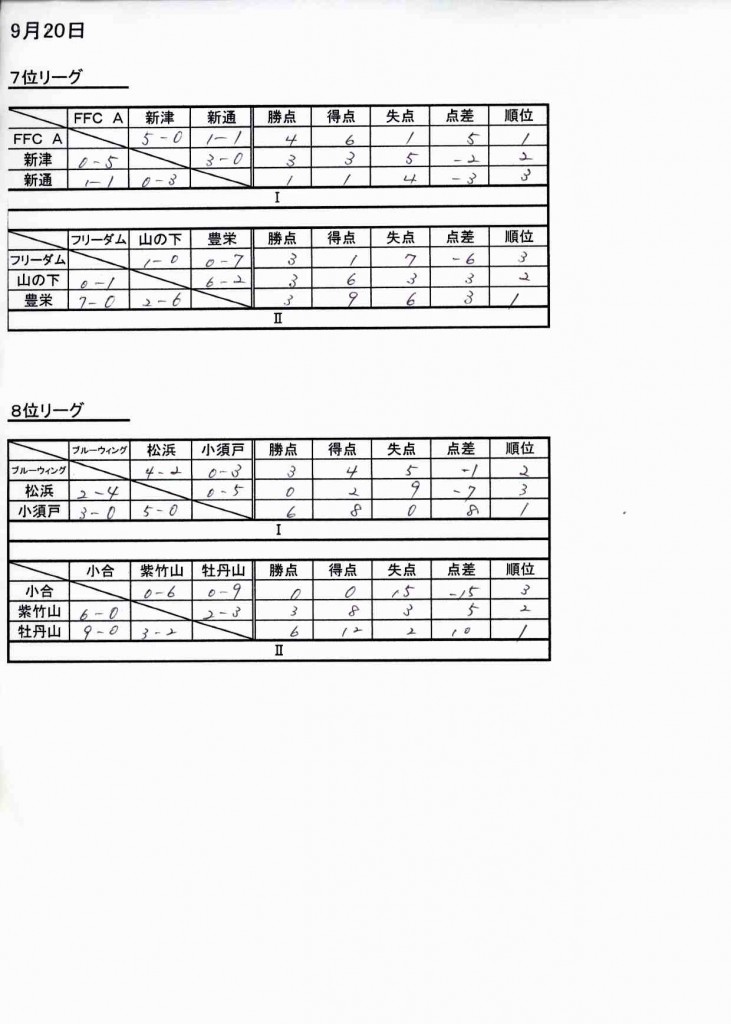 9月20日
7位リーグ
FFC A 新津 新通 勝点 得点 失点 点差 順位
FFC A 5-0 1-1 4 6 1 5 1
新津 0-5 3-0 3 3 5 -2 2
新通 1-1 0-3 1 1 4 -3 3
I
フリーダム 山の下 豊栄 勝点 得点 失点 点差 順位
フリーダム 1-0 0-7 3 1 7 -6 3
山の下 0-1 6-2 3 6 3 3 2
豊栄 7-0 2-6 3 9 6 3 1
Ⅱ
8位リーグ
ブルーウィング 松浜 小須戸 勝点 得点 失点 点差 順位
ブルーウィング 4-2 0-3 3 4 5 -1 2
松浜 2-4 0-5 0 2 9 -7 3
小須戸 3-0 5-0 6 8 0 8 1
I
小合 紫竹山 牡丹山 勝点 得点 失点 点差 順位
小合 0-6 0-9 0 0 15 -15 3
紫竹山 6-0 2-3 3 8 3 5 2
牡丹山 9-0 3-2 6 12 2 10 1
Ⅱ